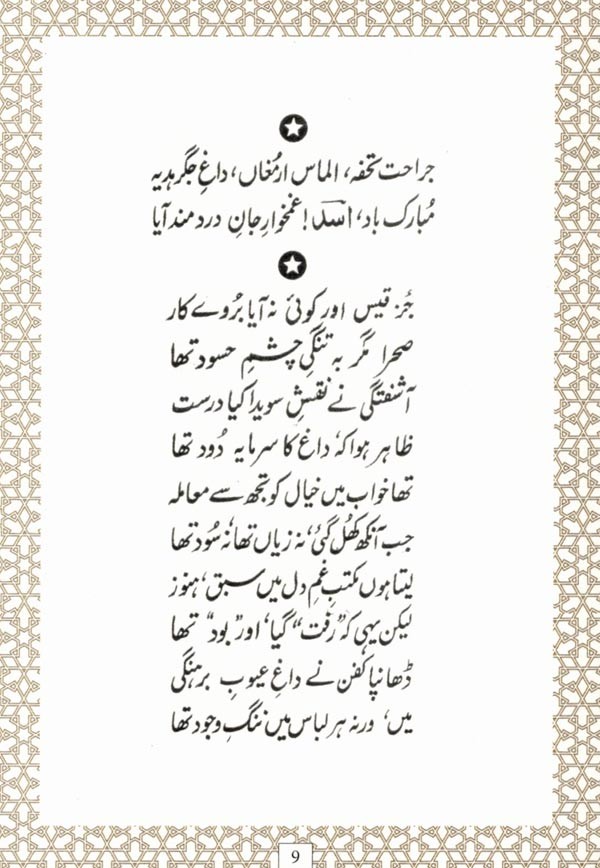 جراحت تحفہ، الماس ارمُغاں، داغِ جگر ہدیہ
مُبارک باد، اسدؔ! غمخوارِ جانِ درد مند آیا
جُز قیس اور کوئی نہ آیا بَرُوے کار
صحرا مگر بہ تنگیِ چشمِ حسود تھا
آشفتگی نے نقشِ سویدا کیا درست
ظاہر ہوا کہ داغ کا سرمایہ دُود تھا
تھا خواب میں خیال کو تجھ سے معاملہ
جب آنکھ کھُل گئی، نہ زیاں تھا، نہ سُود تھا
لیتا ہوں مکتبِ غمِ دل میں سبق، ہنوز
لیکن یہی کہ ”رفت“ گیا، اور ”بود“ تھا
ڈھانپا کفن نے داغِ عیوبِ برہنگی
میں، ورنہ ہر لباس میں ننگِ وجود تھا
9